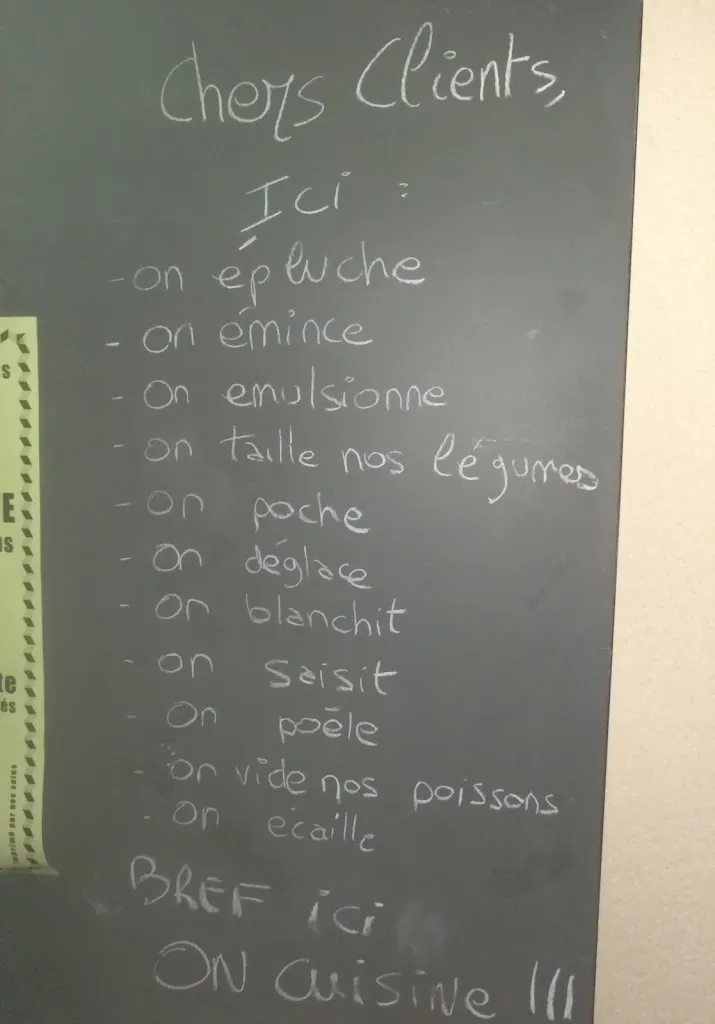 Chers Clients,
Ici :
- on épluche
- on émince
- On emulsionne
- on taille nos légumes
- on poche
- On déglace
- On blanchit
- on saisit
- On poêle
- on vide nos poissons
- on écaille
BREF ici
ON CUISINE !!!
s
E
ns
te
és
imprimé par nos soins